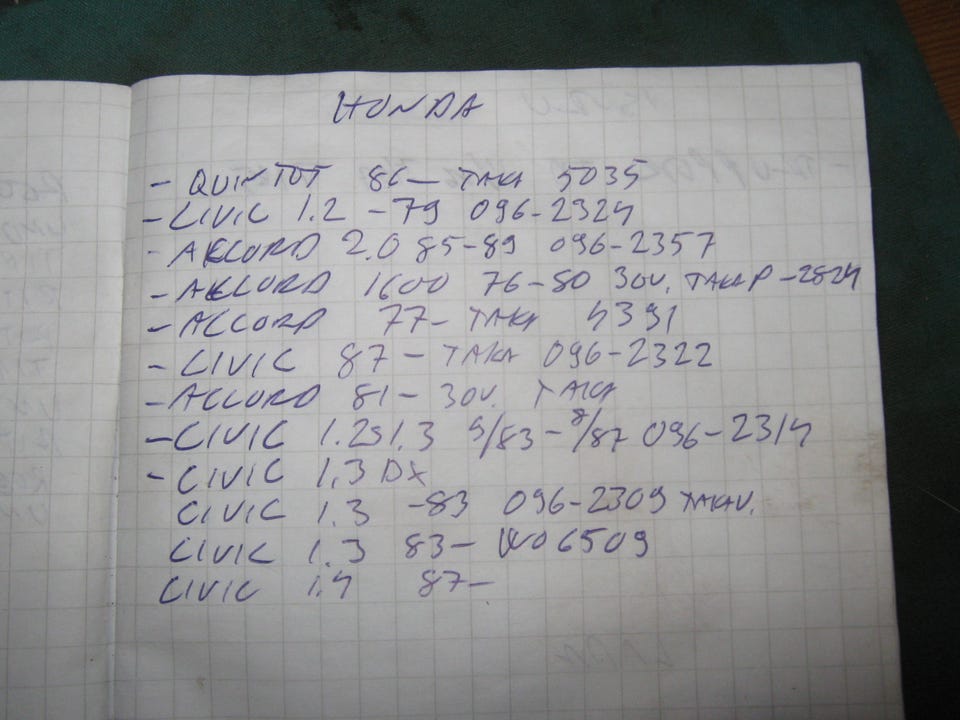 HONDA
- QUINTOT 86- TAKA 5035
- CIVIC 1.2 -79 096-2324
- ACCORD 2.0 85-89 096-2357
- ACCORD 1600 76-80 3OV. TAKAP -2824
- ACCORD 77- TAKA 4391
- CIVIC 87- TAKA 096-2322
- ACCORD 81- 3OV. TAKA
- CIVIC 1.2 1.3 9/83-8/87 096-2314
- CIVIC 1,3 DX
CIVIC 1.3 -83 096-2309 TAKAV.
CIVIC 1.3 83- 06509
CIVIC 1.4 87-